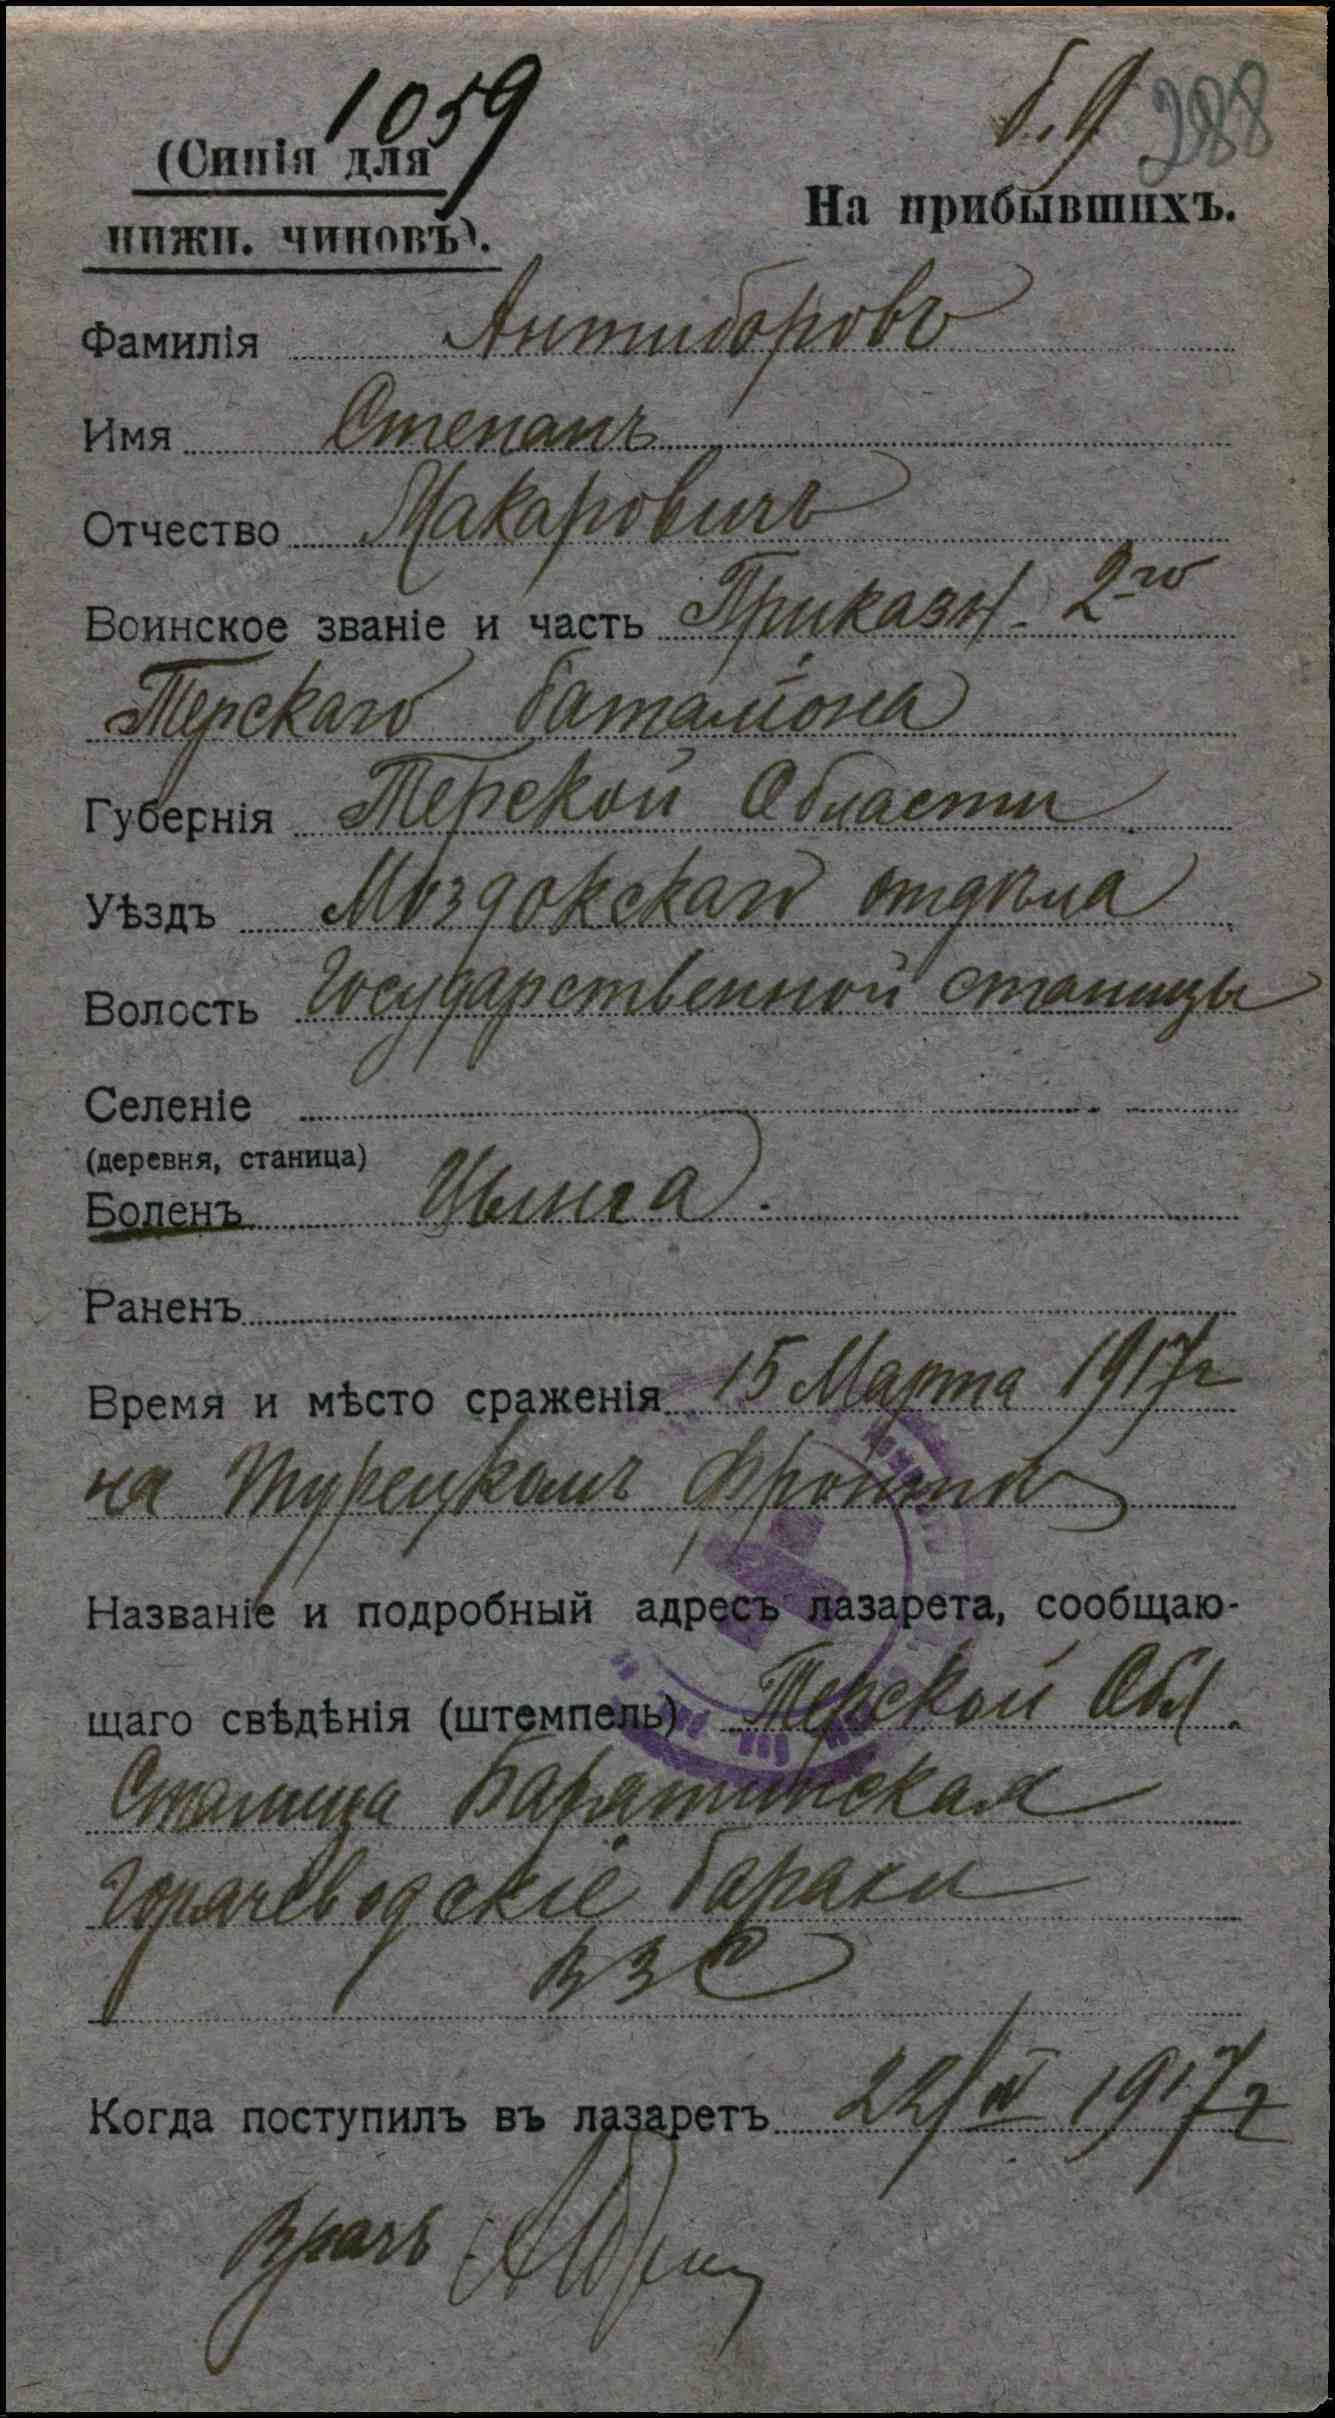 1059
б. 9 288
(Синія для
нижн. чиновъ).
На прибывшихъ.
Фамилія Антиборовъ
Имя Степанъ
Отчество Макаровичъ
Воинское званіе и часть Приказн. 2го
Терскаго баталіона
Губернія Терской Области
Уѣздъ Моздокскаго отдѣла
Волость Государственной станицы
Селеніе
(деревня, станица)
Боленъ Цынга.
Раненъ
Время и мѣсто сраженія 15 Марта 1917г
на Турецкомъ фронтѣ
Названіе и подробный адресъ лазарета, сообщаю-
щаго свѣдѣнія (штемпель) Терской Обл.
Станица Барятинская
Горячеводскіе бараки
ВЗС
Когда поступилъ въ лазаретъ 22/IV 1917г
Врачъ